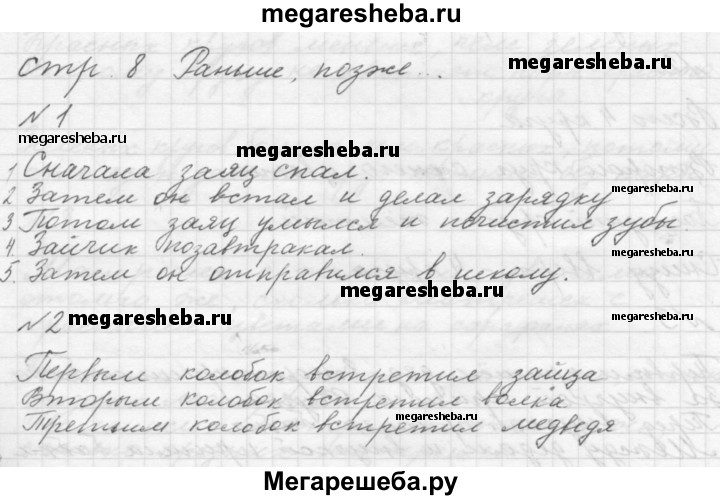 megaresheba.ru
стр. 8 Раньше, позже...
megaresheba.ru
№1
megaresheba.ru
megaresheba.ru
1 Сначала заяц спал.
2 Затем он встал и делал зарядку
megaresheba.ru
3 Потом заяц умылся и почистил зубы.
4. Зайчик позавтракал.
megaresheba.ru
5. Затем он отправился в школу.
megaresheba.ru
№2
megaresheba.ru
megaresheba.ru
Первым колобок встретил зайца
Вторым колобок встретил волка
megaresheba.ru
Третьим колобок встретил медведя
Мегарешеба.ру